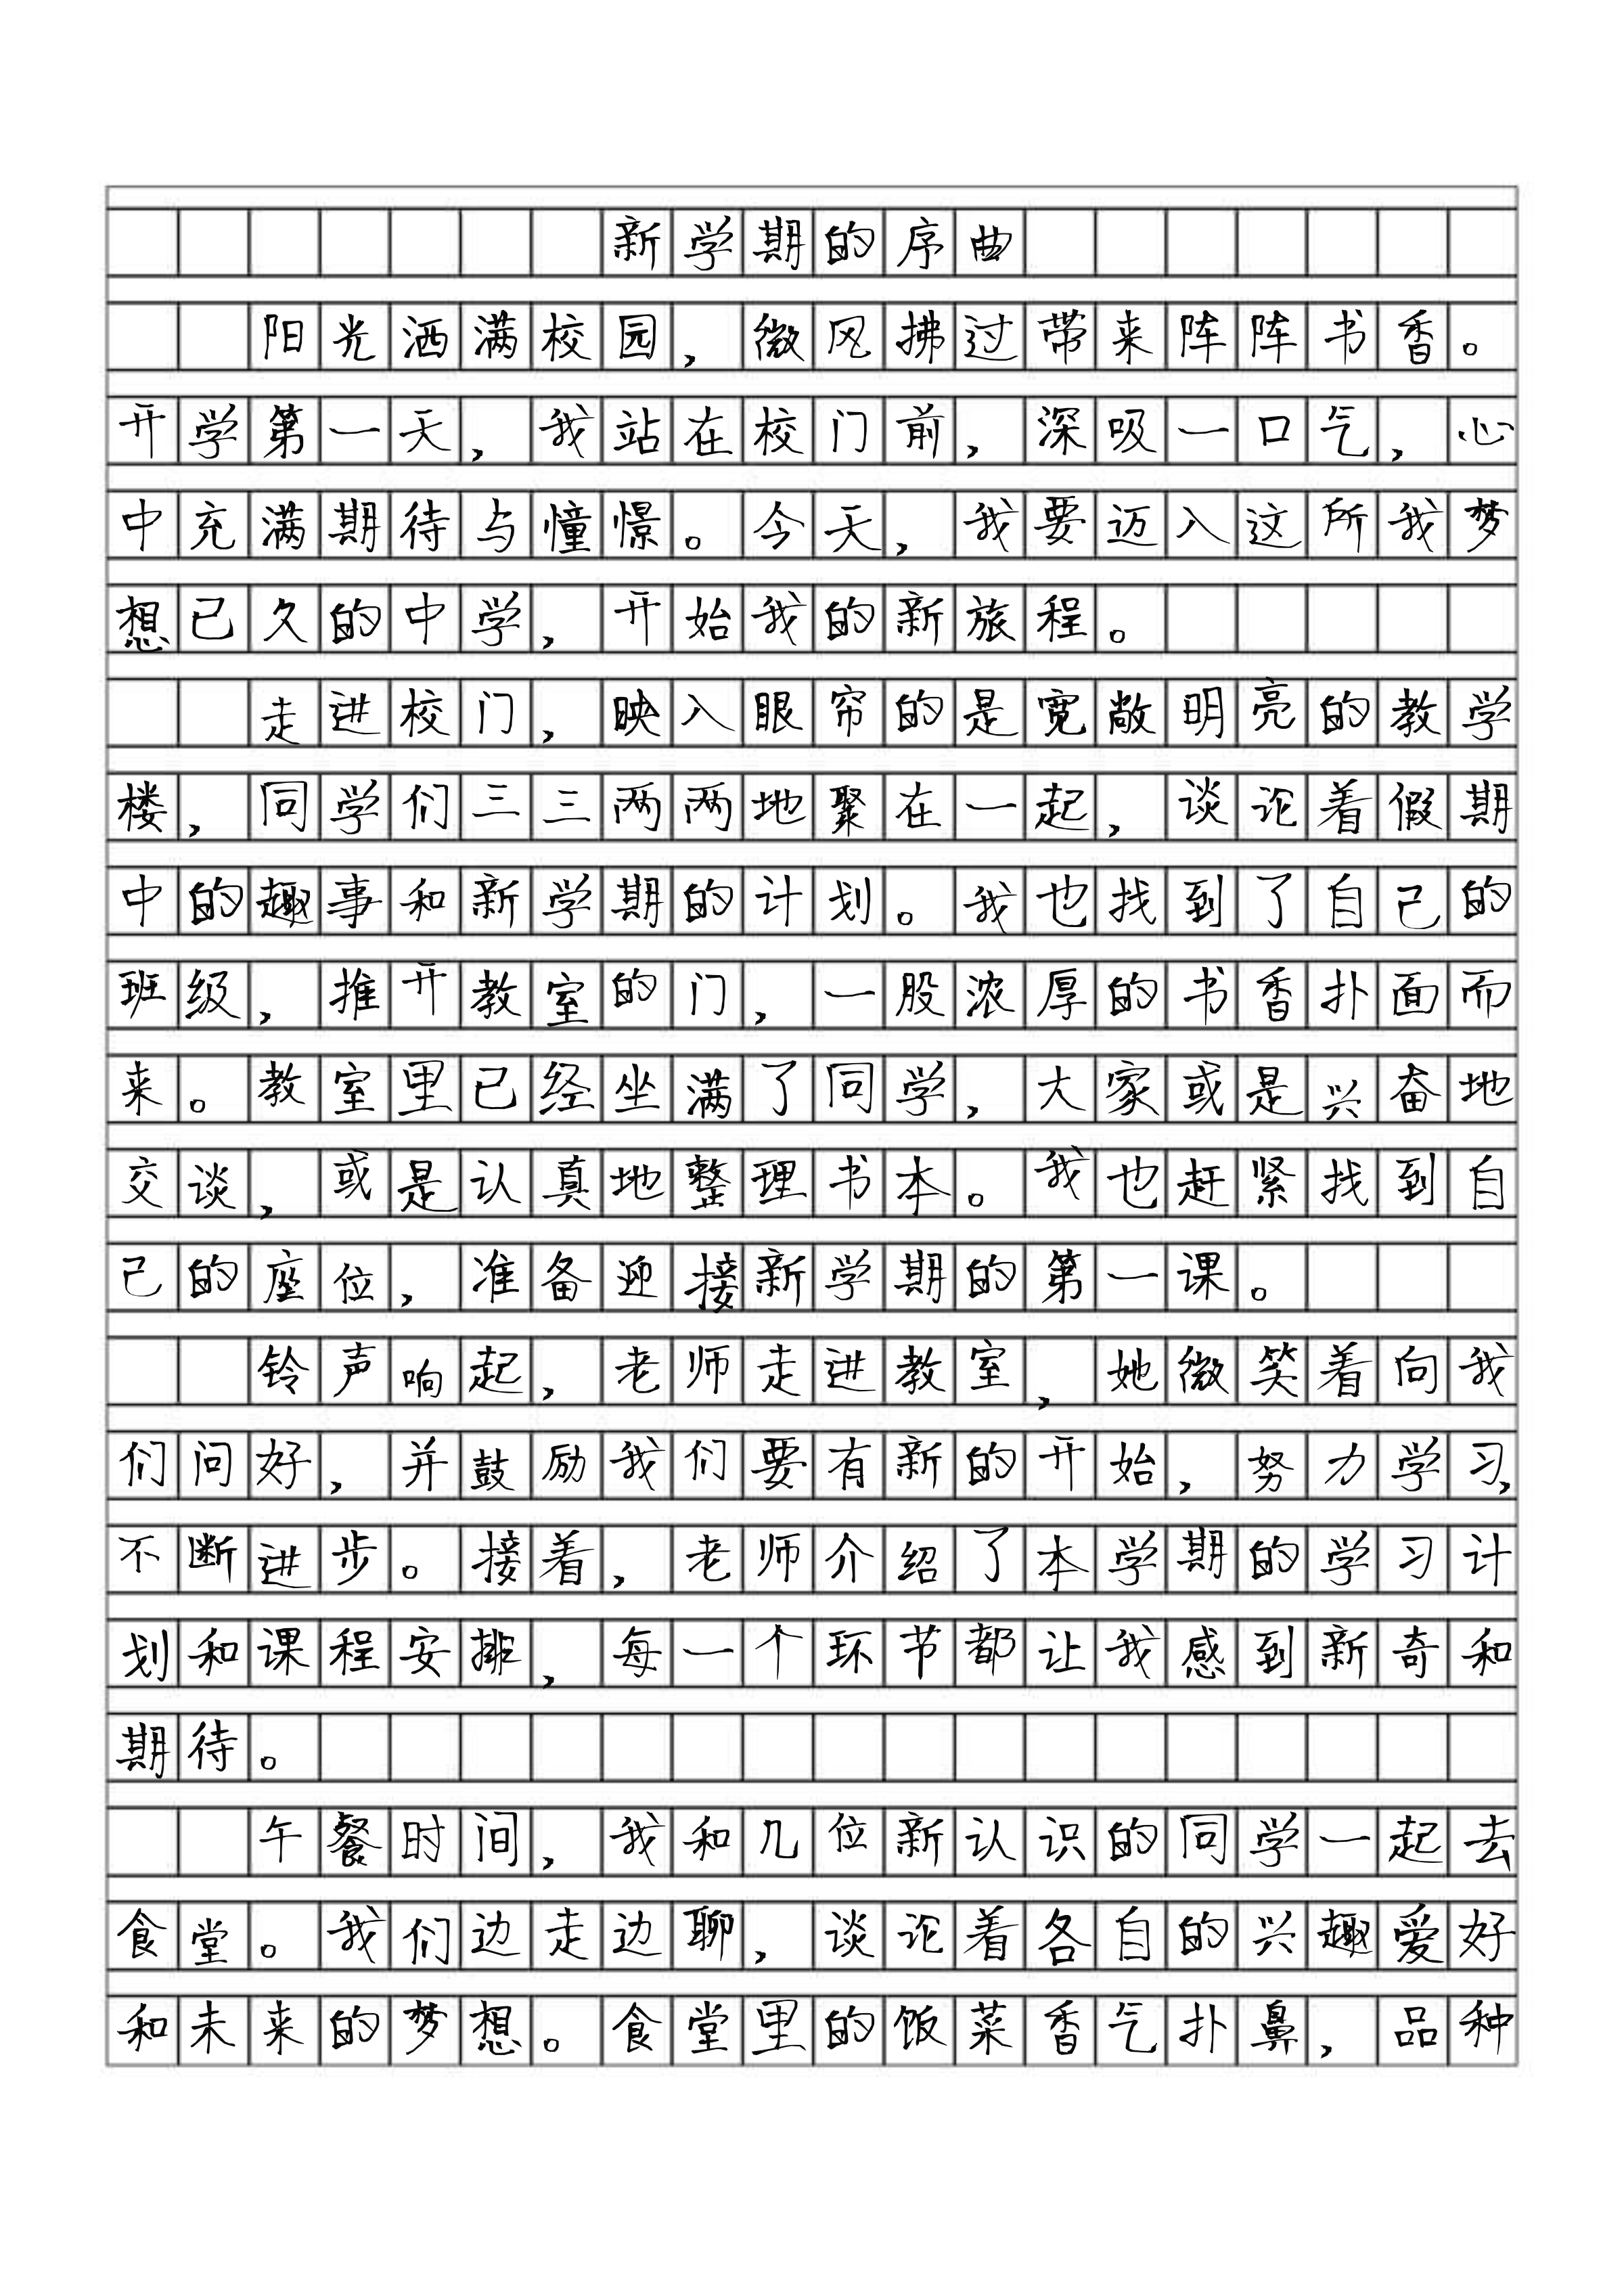 新学期的序曲
阳光洒满校园，微风拂过带来阵阵书香。
开学第一天，我站在校门前，深吸一口气，心
中充满期待与憧憬。今天，我要迈入这所我梦
想已久的中学，开始我的新旅程。
走进校门，映入眼帘的是宽敞明亮的教学
楼，同学们三三两两地聚在一起，谈论着假期
中的趣事和新学期的计划。我也找到了自己的
班级，推开教室的门，一股浓厚的书香扑面而
来。教室里已经坐满了同学，大家或是兴奋地
交谈，或是认真地整理书本。我也赶紧找到自
己的座位，准备迎接新学期的第一课。
铃声响起，老师走进教室，她微笑着向我
们问好，并鼓励我们要有新的开始，努力学习，
不断进步。接着，老师介绍了本学期的学习计
划和课程安排，每一个环节都让我感到新奇和
期待。
午餐时间，我和几位新认识的同学一起去
食堂。我们边走边聊，谈论着各自的兴趣爱好
和未来的梦想。食堂里的饭菜香气扑鼻，品种